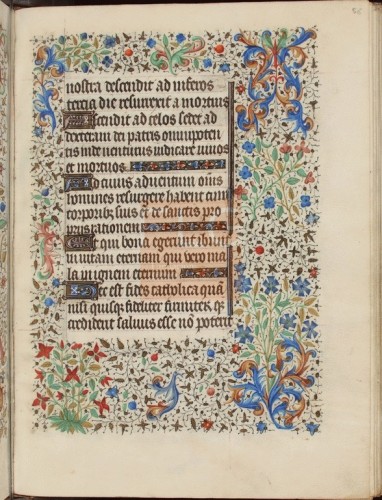 nostra descendit ad inferos
tercia die resurrexit a mortuis
Ascendit ad celos sedet ad
dexteram dei patris omnipoten
tis inde venturus iudicare vivos
et mortuos.
Ad cuius adventum om̄s
homines resurgere habent cum
corporibꝫ suis et de
pris rationem
Et qui bona egerunt ibunt
in vitam eternam qui vero ma
la in ignem eternum
Hec est fides catholica quā
nisi quisqꝫ fideliter firmiterqꝫ
crediderit salvus esse nō poterit